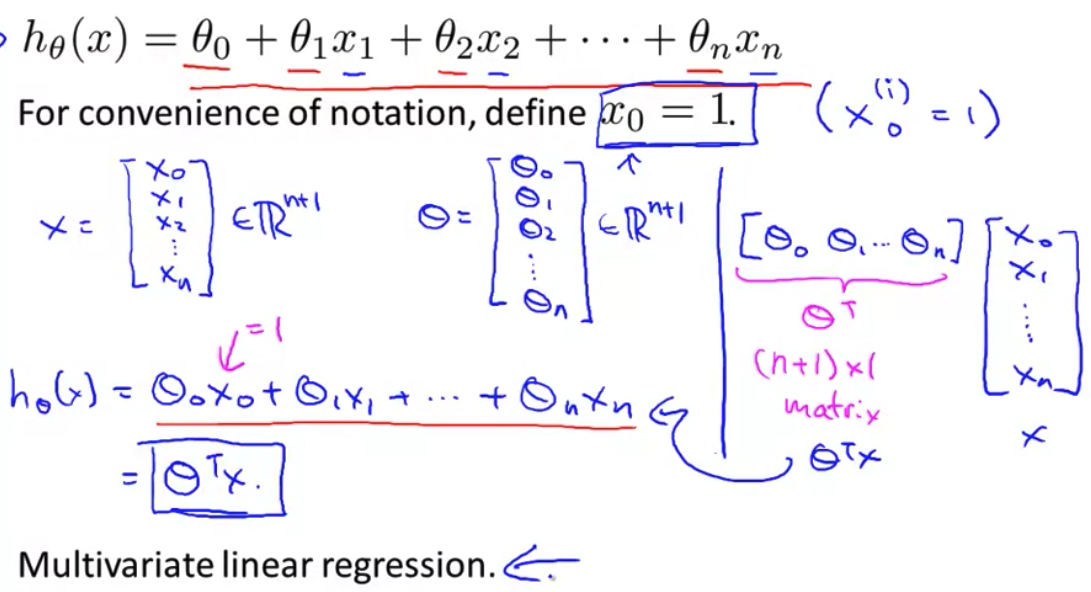 h_θ(x) = θ₀ + θ₁x₁ + θ₂x₂ + ⋯ + θₙxₙ
For convenience of notation, define x₀ = 1. (x₀⁽ⁱ⁾ = 1)
x = [x₀ x₁ x₂ ⋮ xₙ] ∈ ℝⁿ⁺¹
θ = [θ₀ θ₁ θ₂ ⋮ θₙ] ∈ ℝⁿ⁺¹
= 1
h_θ(x) = θ₀x₀ + θ₁x₁ + ⋯ + θₙxₙ
= θᵀx.
[θ₀ θ₁ ⋯ θₙ] [x₀ x₁ ⋮ xₙ]
θᵀ
(n+1) × 1
matrix
x
θᵀx
Multivariate linear regression.